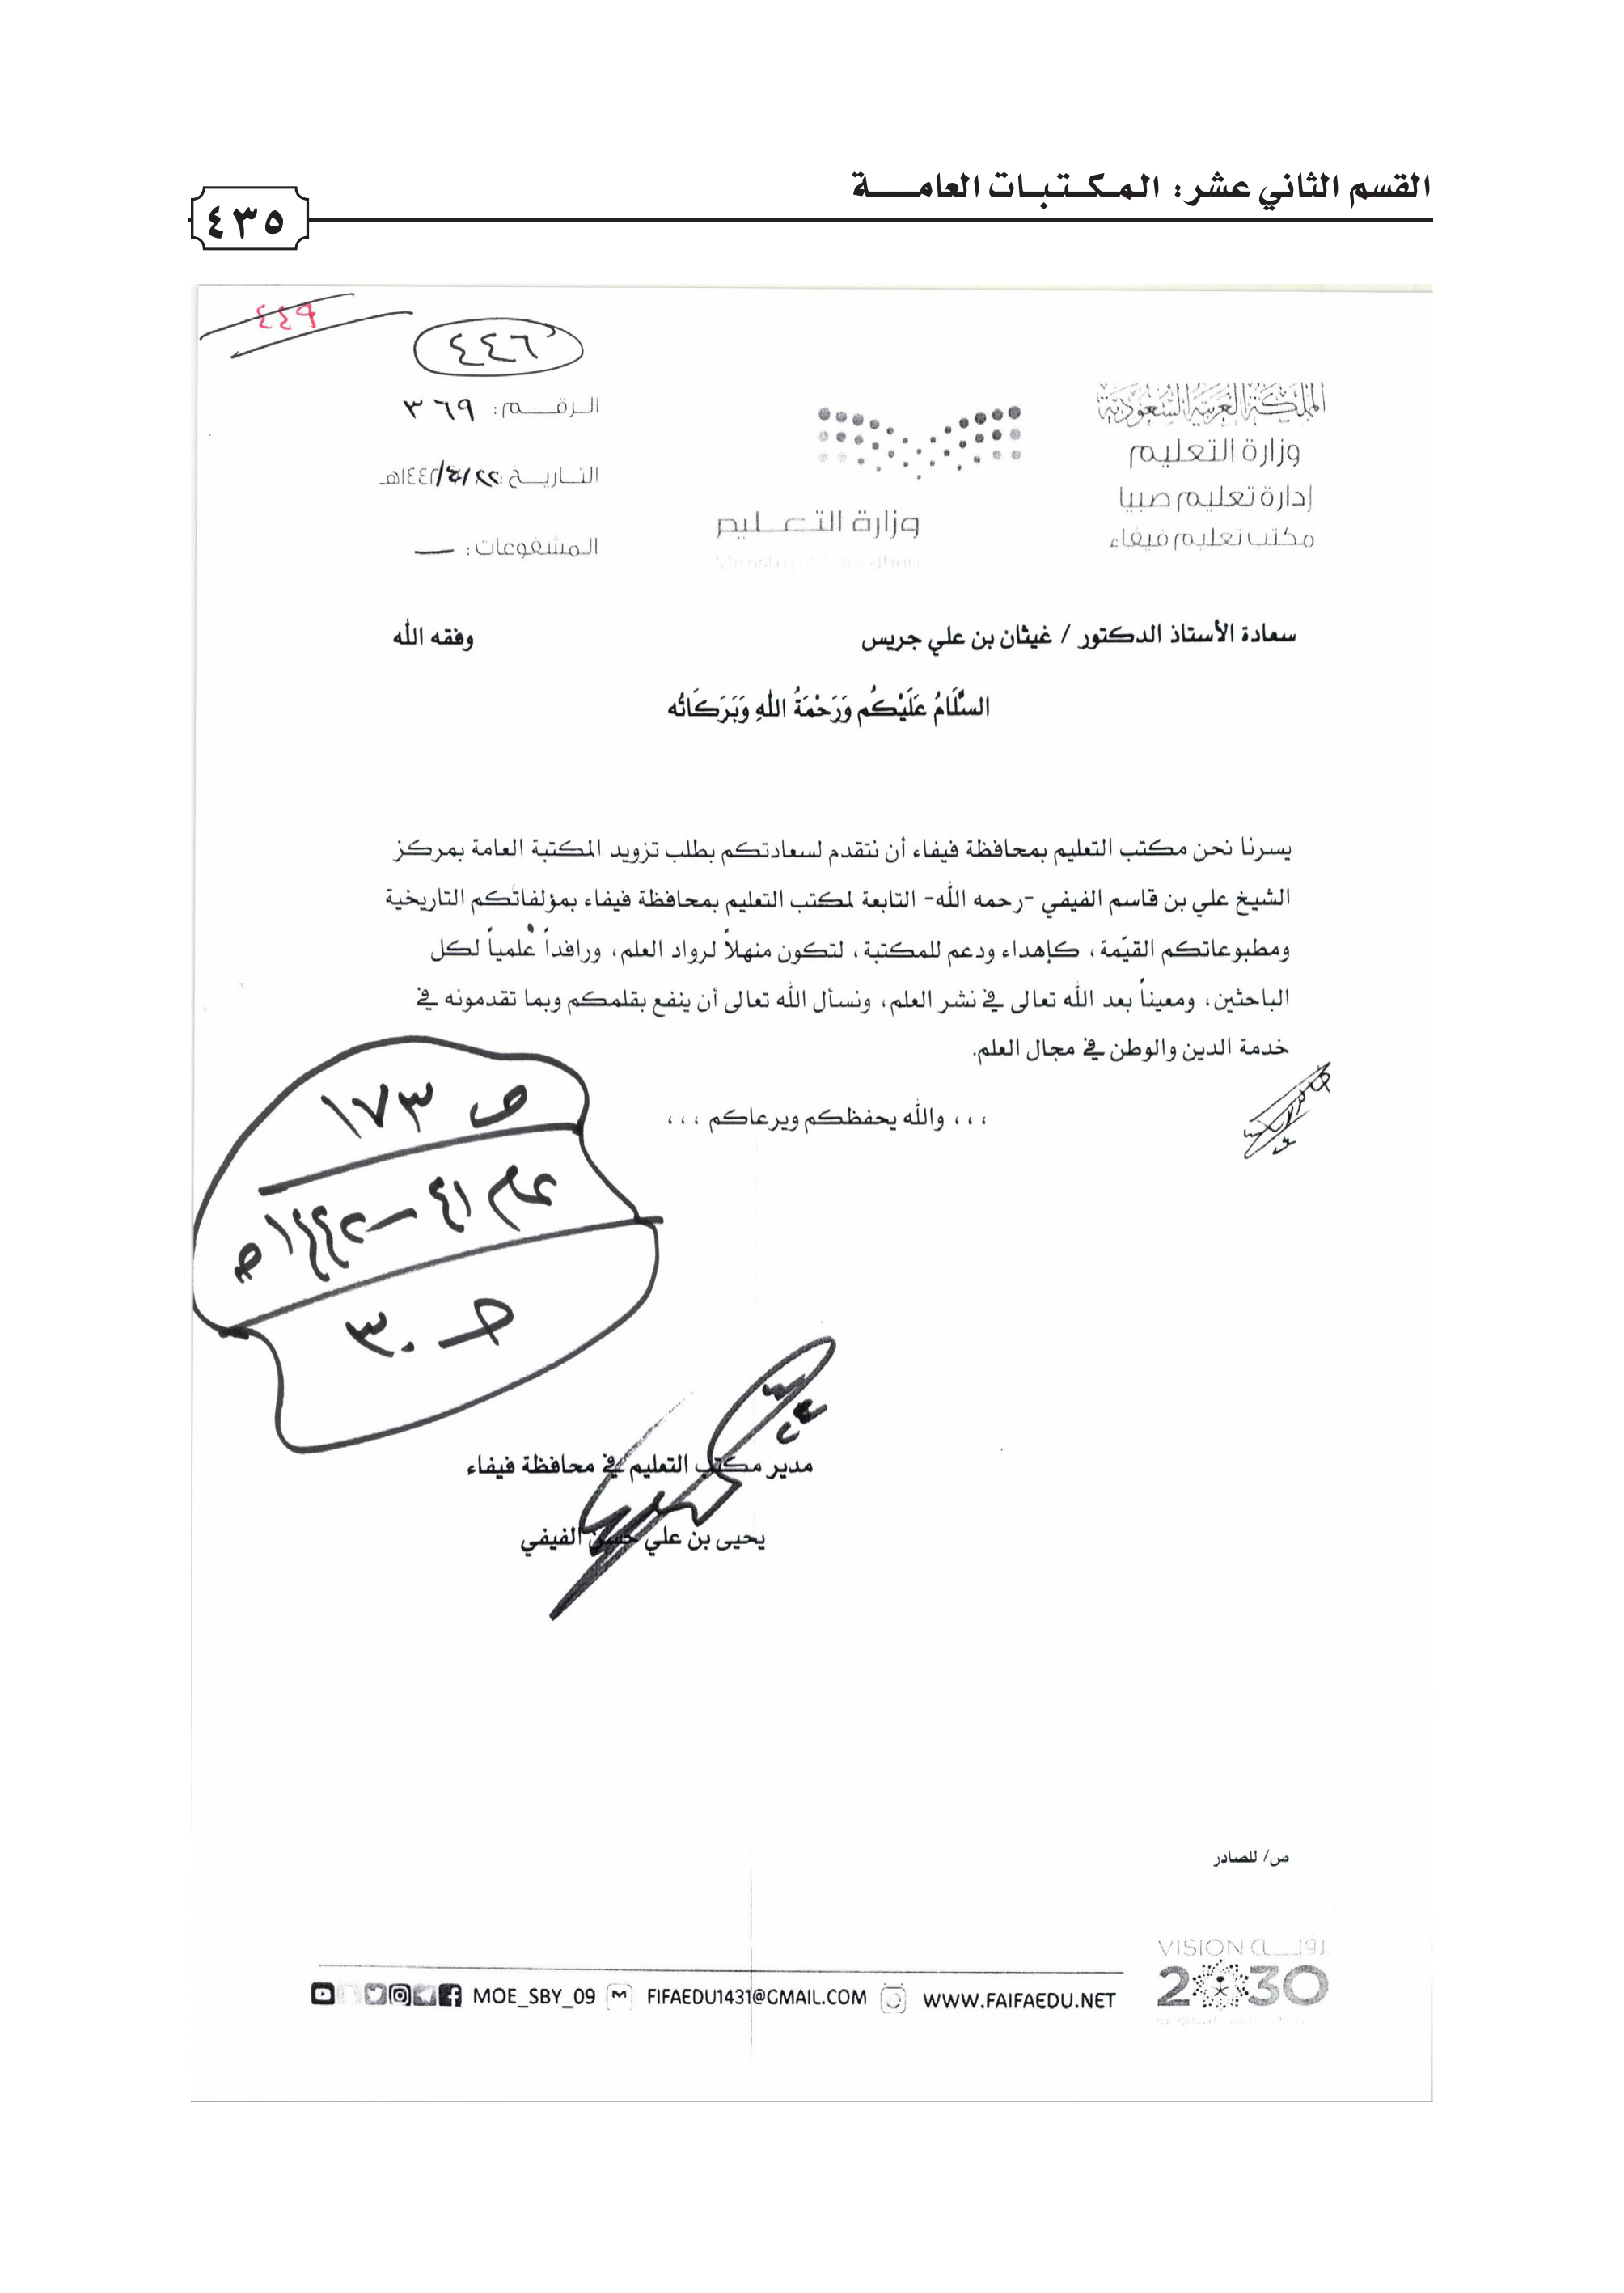 القسم الثاني عشر: المكتبات العامة
٤٣٥
٤٤٩
٤٤٦
المملكة العربية السعودية
وزارة التعليم
إدارة تعليم صبيا
مكتب تعليم فيفاء
وزارة التعليم
Ministry of Education
الرقم: ٣٦٩
التاريخ: ٢٢/٤/١٤٤٢هـ
المشفوعات: —
سعادة الأستاذ الدكتور / غيثان بن علي جريس وفقه الله
السَّلَامُ عَلَيْكُم وَرَحْمَةُ اللهِ وَبَرَكَاتُه
يسرنا نحن مكتب التعليم بمحافظة فيفاء أن نتقدم لسعادتكم بطلب تزويد المكتبة العامة بمركز
الشيخ علي بن قاسم الفيفي -رحمه الله- التابعة لمكتب التعليم بمحافظة فيفاء بمؤلفاتكم التاريخية
ومطبوعاتكم القيّمة، كإهداء ودعم للمكتبة، لتكون منهلاً لرواد العلم، ورافداً علمياً لكل
الباحثين، ومعيناً بعد الله تعالى في نشر العلم، ونسأل الله تعالى أن ينفع بقلمكم وبما تقدمونه في
خدمة الدين والوطن في مجال العلم.
،،، والله يحفظكم ويرعاكم ،،،
ص ١٧٣
عام ٤١–١٤٤٢هـ
حـ ٣٠
مدير مكتب التعليم في محافظة فيفاء
يحيى بن علي حسن الفيفي
ص/ للصادر
VISION رؤية
2030
MOE_SBY_09 FIFAEDU1431@GMAIL.COM WWW.FAIFAEDU.NET